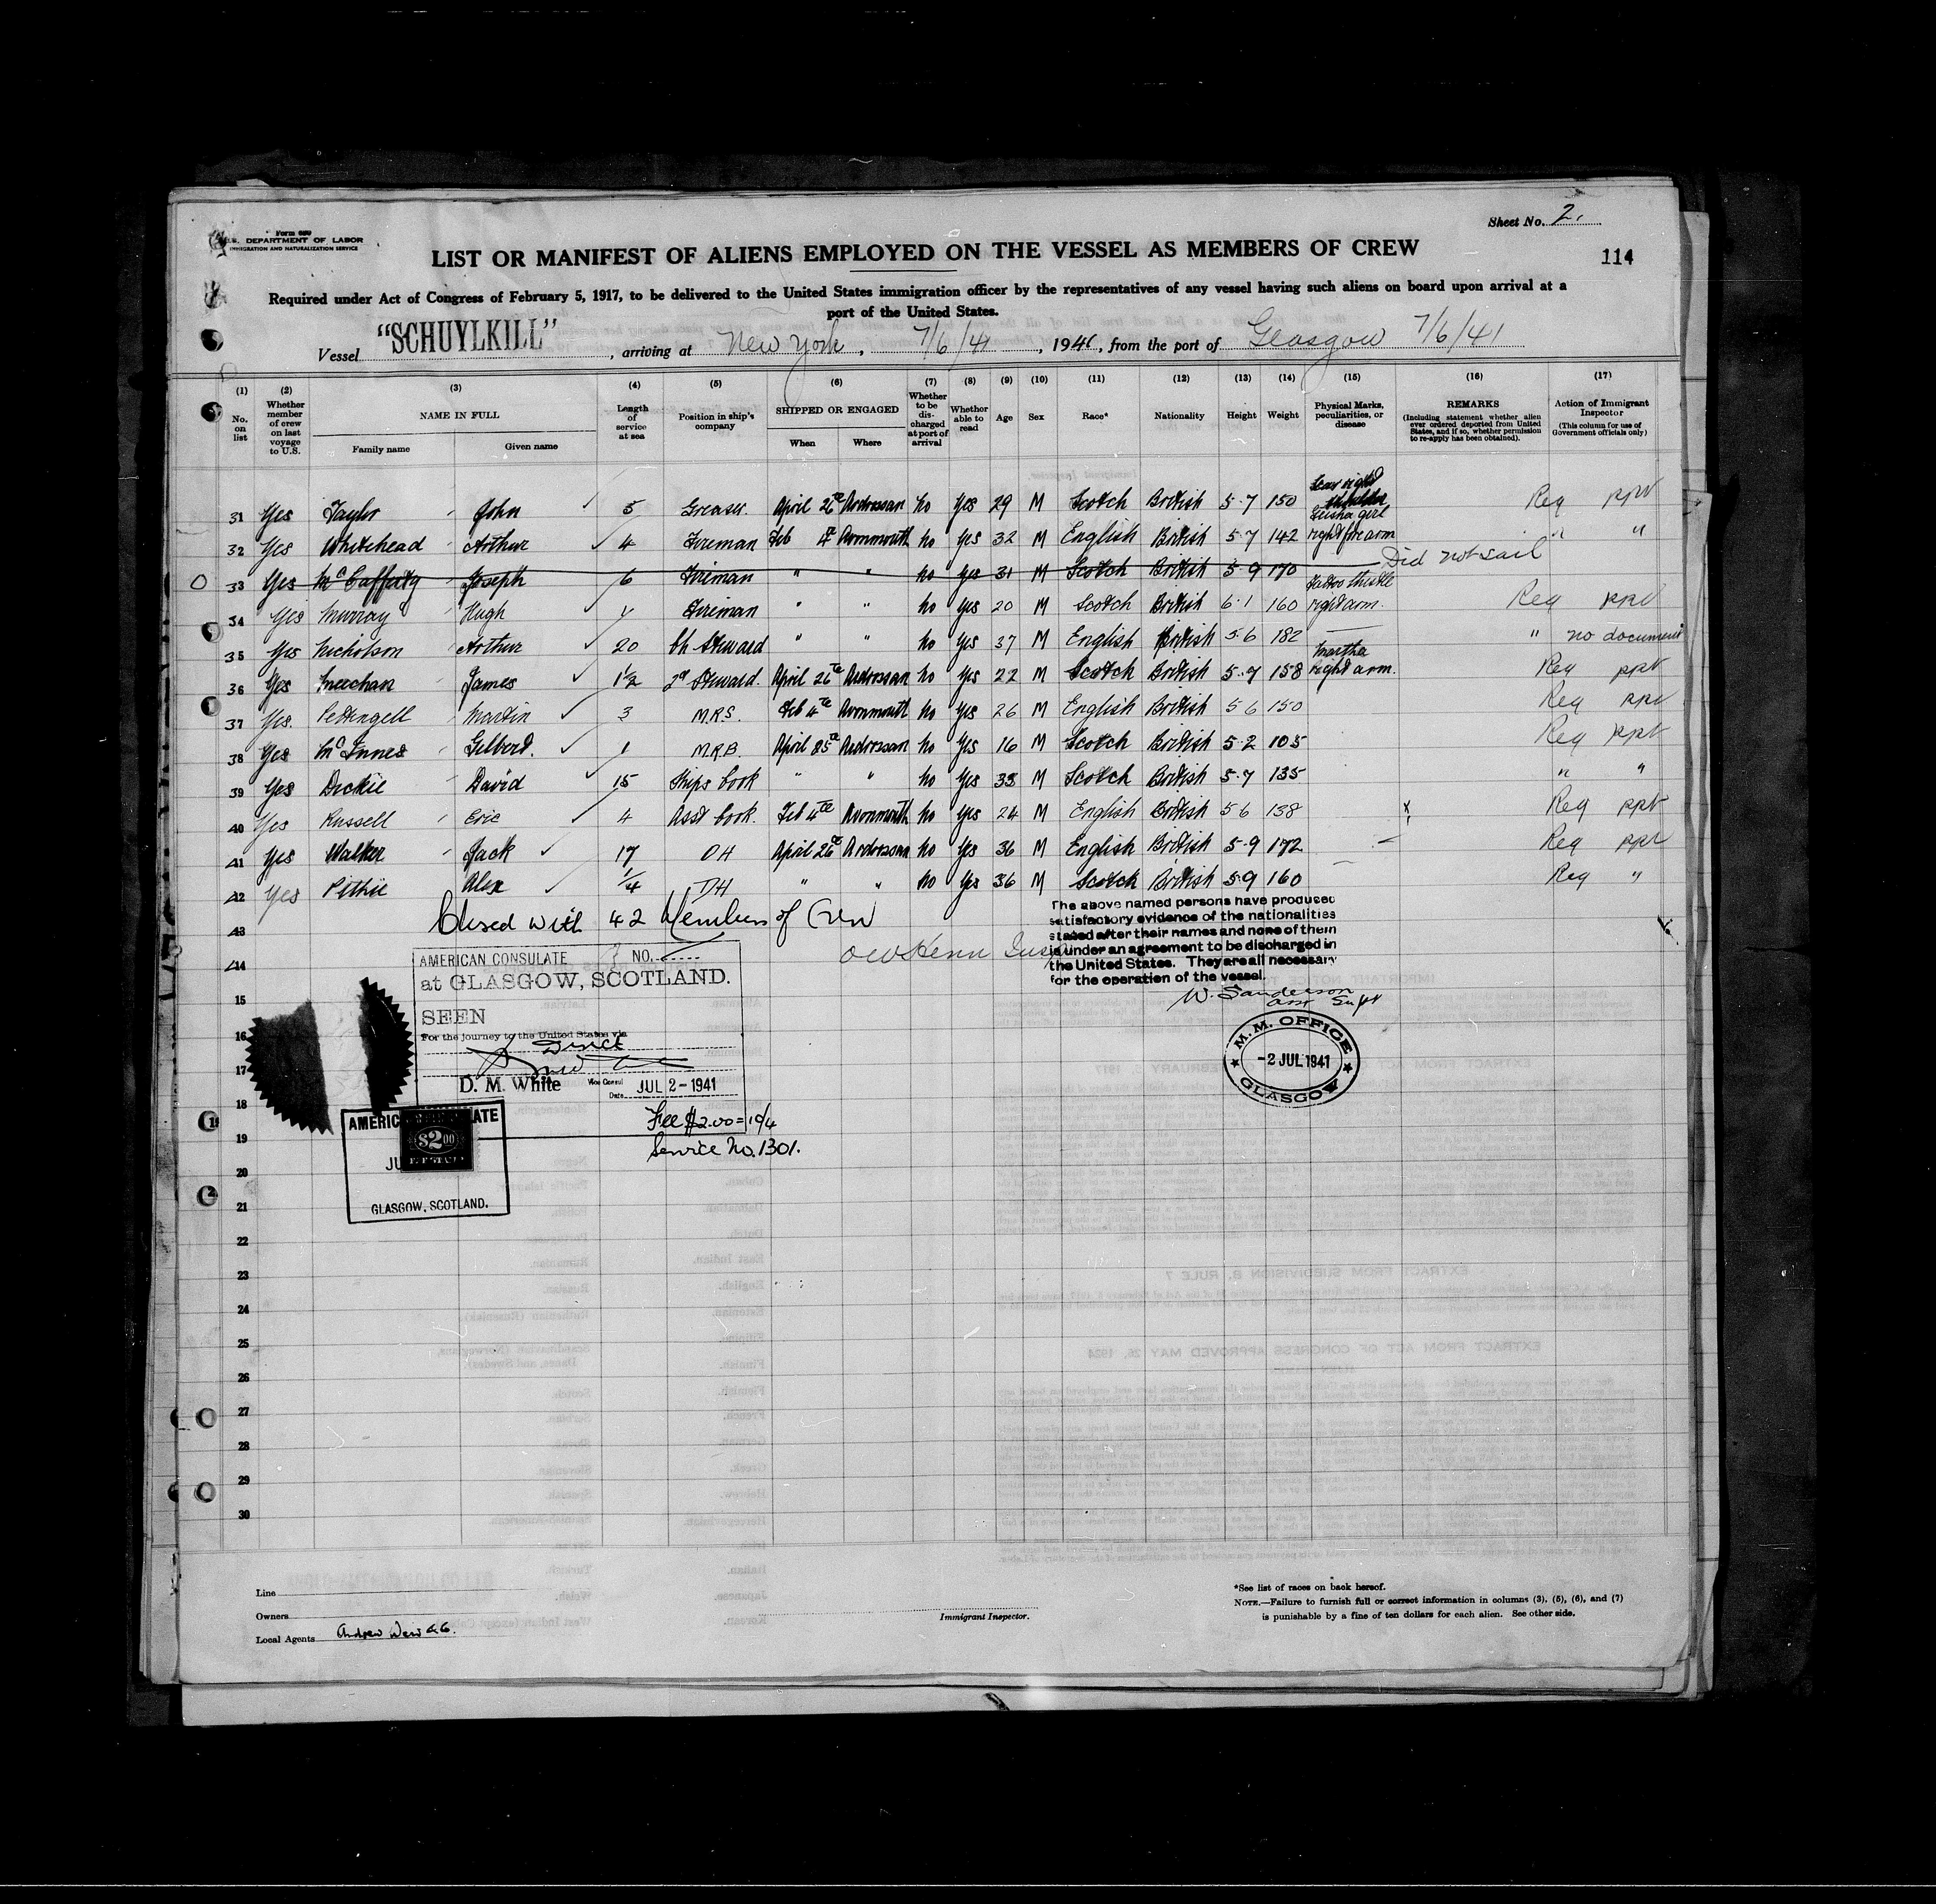 Sheet No. 2.
Form 689
U.S. DEPARTMENT OF LABOR
IMMIGRATION AND NATURALIZATION SERVICE
LIST OR MANIFEST OF ALIENS EMPLOYED ON THE VESSEL AS MEMBERS OF CREW
114
Required under Act of Congress of February 5, 1917, to be delivered to the United States immigration officer by the representatives of any vessel having such aliens on board upon arrival at a
port of the United States.
Vessel "SCHUYLKILL", arriving at New York, 7/6/41, 1941, from the port of Glasgow 7/6/41
(1) (2) (3) (4) (5) (6) (7) (8) (9) (10) (11) (12) (13) (14) (15) (16) (17)
No. on list
Whether member of crew on last voyage to U.S.
NAME IN FULL
Family name Given name
Length of service at sea
Position in ship's company
SHIPPED OR ENGAGED
When Where
Whether to be discharged at port of arrival
Whether able to read
Age
Sex
Race*
Nationality
Height
Weight
Physical Marks, peculiarities, or disease
REMARKS
(Including statement whether alien ever ordered deported from United States, and if so, whether permission to re-apply has been obtained).
Action of Immigrant Inspector
(This column for use of Government officials only)
31 Yes Taylor John 5 Greaser. April 26th Ardrossan No Yes 29 M Scotch British 5-7 150 Scar right Req ppt
32 Yes Whitehead Arthur 4 Fireman Feb 4th Avonmouth No Yes 32 M English British 5-7 142 Geisha girl right forearm " "
33 Yes McCafferty Joseph 6 Fireman " " No Yes 31 M Scotch British 5-9 170 Did not sail
34 Yes Murray Hugh Fireman " " No Yes 20 M Scotch British 6-1 160 Tattoo thistle right arm. Req ppt
35 Yes Nicholson Arthur 20 Ch Steward " " No Yes 37 M English British 5-6 182 — " no document
36 Yes Meechan James 1½ 2d Steward. April 26th Ardrossan No Yes 22 M Scotch British 5-7 158 Martha right arm. Req ppt
37 Yes. Pettingell Martin 3 M.R.S. Feb 4th Avonmouth No Yes 26 M English British 5 6 150 Req ppt
38 Yes McInnes Gilbert. 1 M.R.B April Ardrossan No Yes 16 M Scotch British 5-2 105 Req ppt
39 Yes Dickie David 15 Ships Cook " " No Yes 33 M Scotch British 5-7 135 " "
40 Yes Russell Eric 4 Asst Cook. Feb 4th Avonmouth No Yes 24 M English British 5 6 138 Req ppt
41 Yes Walker Jack 17 DH April 26th Ardrossan No Yes 36 M English British 5-9 172 Req ppt
42 Yes Pithie Alex ¼ DH " " No Yes 36 M Scotch British 5-9 160 Req "
43
Closed with 42 Members of Crew
The above named persons have produced
satisfactory evidence of the nationalities
stated after their names and none of them
is under an agreement to be discharged in
the United States. They are all necessary
for the operation of the vessel.
W. Sanderson
Asst Supt
M.M. OFFICE
-2 JUL 1941
GLASGOW
14
AMERICAN CONSULATE NO.
at GLASGOW, SCOTLAND.
SEEN
For the journey to the United States via
Direct
D. M. White Vice Consul
Date JUL 2-1941
Fee $2.00=10/4
Service No. 1301.
AMERICAN CONSULATE
$2.00
GLASGOW, SCOTLAND.
15
16
17
18
19
20
21
22
23
24
25
26
27
28
29
30
Line
Owners
Local Agents Andrew Weir & Co.
Immigrant Inspector.
*See list of races on back hereof.
NOTE.—Failure to furnish full or correct information in columns (3), (5), (6), and (7)
is punishable by a fine of ten dollars for each alien. See other side.